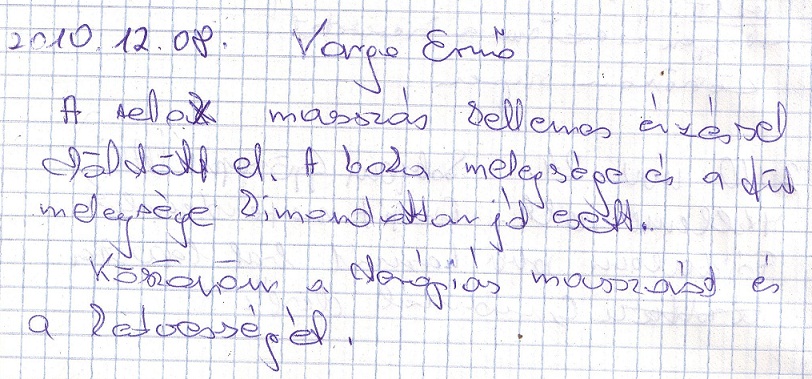 2010.12.08. Varga Ernő
A relax masszás kellemes érzéssel
töltött el. A boka melegsége és a
melegsége kimondottan jól esett.
Köszönöm a terápiás masszást és
a kedvességét.